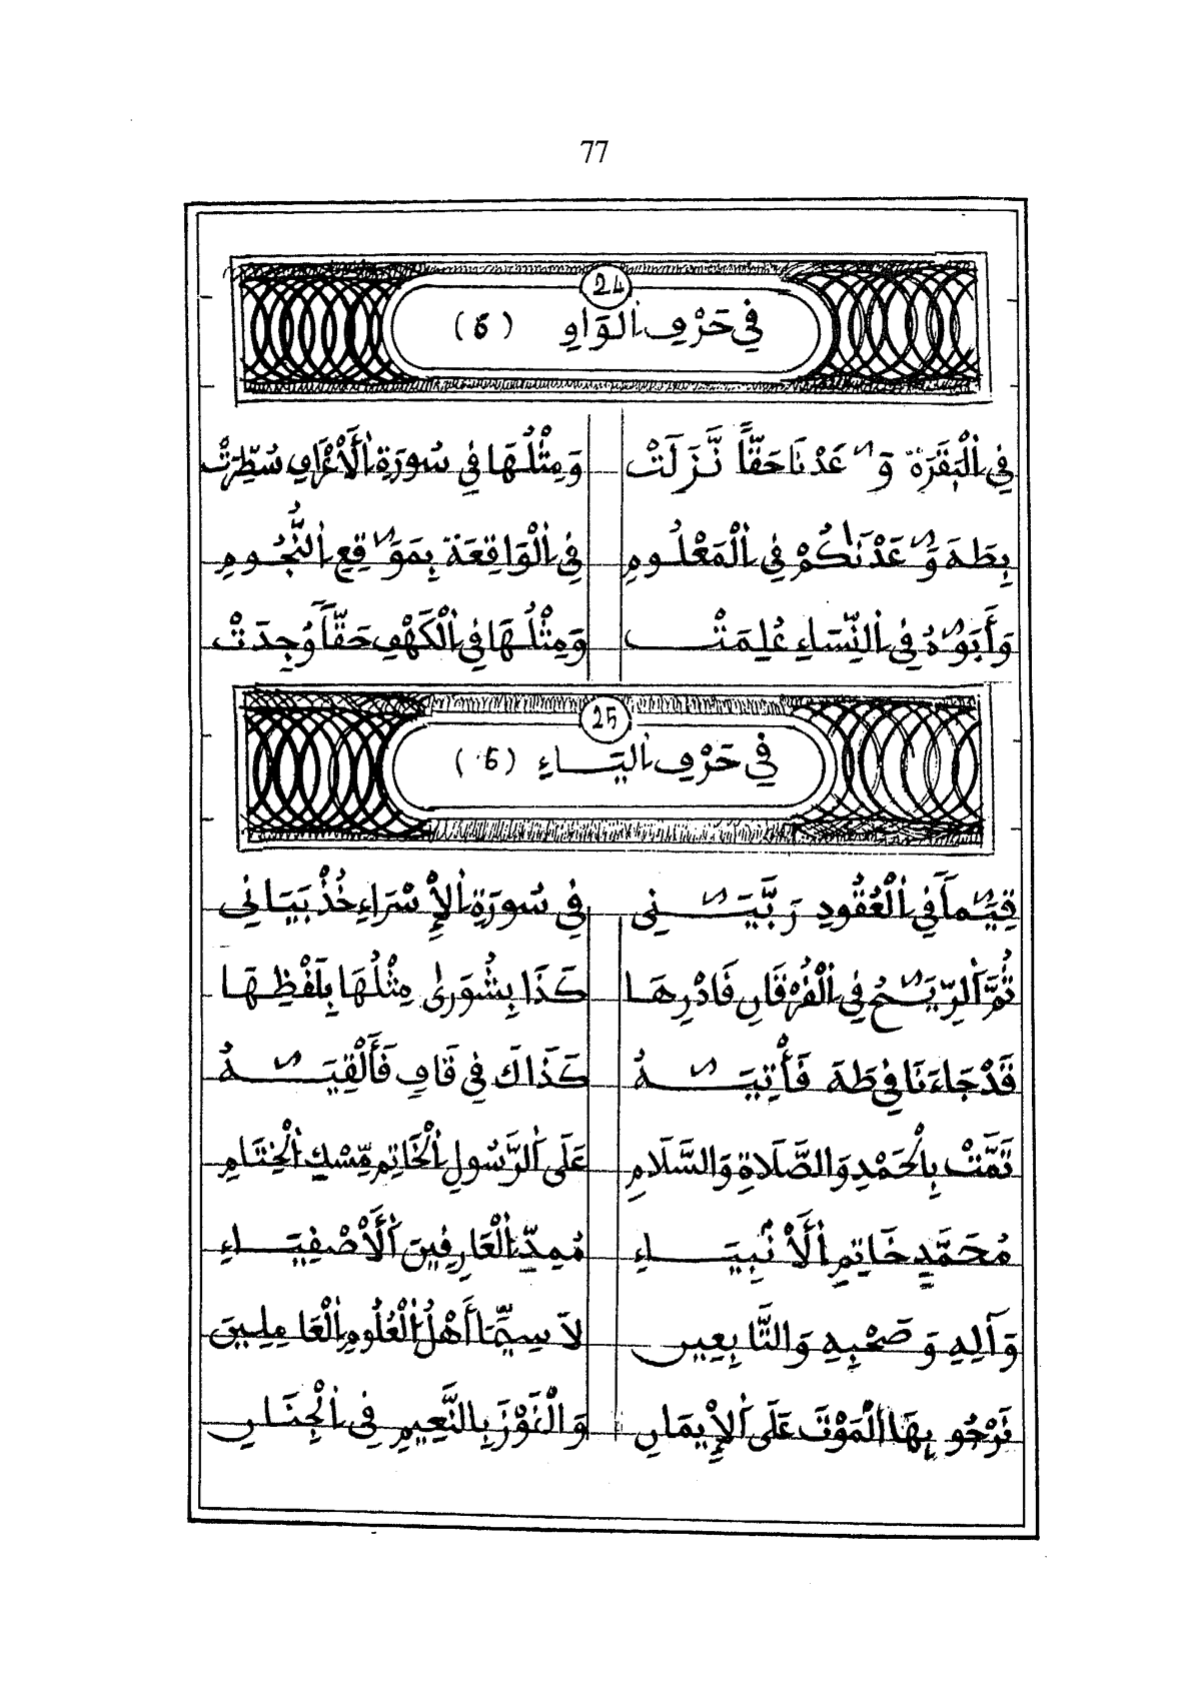 77
24
فِي حَرْفِ الْوَاوِ (6)
فِي الْبَقَرَةِ وَٰعَدْنَا حَقّاً نَّزَلَتْ وَمِثْلُهَا فِي سُورَةِ الْأَعْرَافِ سُطِّرَتْ
بِطَهَ وَٰعَدْنَٰكُمْ فِي الْمَعْلُومِ فِي الْوَاقِعَةِ بِمَوَٰقِعِ النُّجُومِ
وَأَبَوَٰهُ فِي النِّسَاءِ عُلِمَتْ وَمِثْلُهَا فِي الْكَهْفِ حَقّاً وُجِدَتْ
25
فِي حَرْفِ الْيَاءِ (6)
قِيَٰماً فِي الْعُقُودِ رَبَّيَٰنِي فِي سُورَةِ الْإِسْرَاءِ خُذْ بَيَانِي
ثُمَّ الرِّيَٰحُ فِي الْفُرْقَانِ فَادْرِهَا كَذَا بِشُورَىٰ مِثْلُهَا بِلَفْظِهَا
قَدْ جَاءَنَا فِي طَهَ فَأْتِيَٰهُ كَذَاكَ فِي قَافِ فَأَلْقِيَٰهُ
تَمَّتْ بِالْحَمْدِ وَالصَّلَاةِ وَالسَّلَامِ عَلَى الرَّسُولِ الْخَاتِمِ مِّسْكِ الْخِتَامِ
مُحَمَّدٍ خَاتِمِ الْأَنْبِيَاءِ مُمِدِّ الْعَارِفِينَ الْأَصْفِيَاءِ
وَآلِهِ وَصَحْبِهِ وَالتَّابِعِين لَا سِيَّمَا أَهْلُ الْعُلُومِ الْعَامِلِينَ
نَرْجُو بِهَا الْمَوْتَ عَلَى الْإِيمَانِ وَالْفَوْزَ بِالنَّعِيمِ فِي الْجِنَانِ